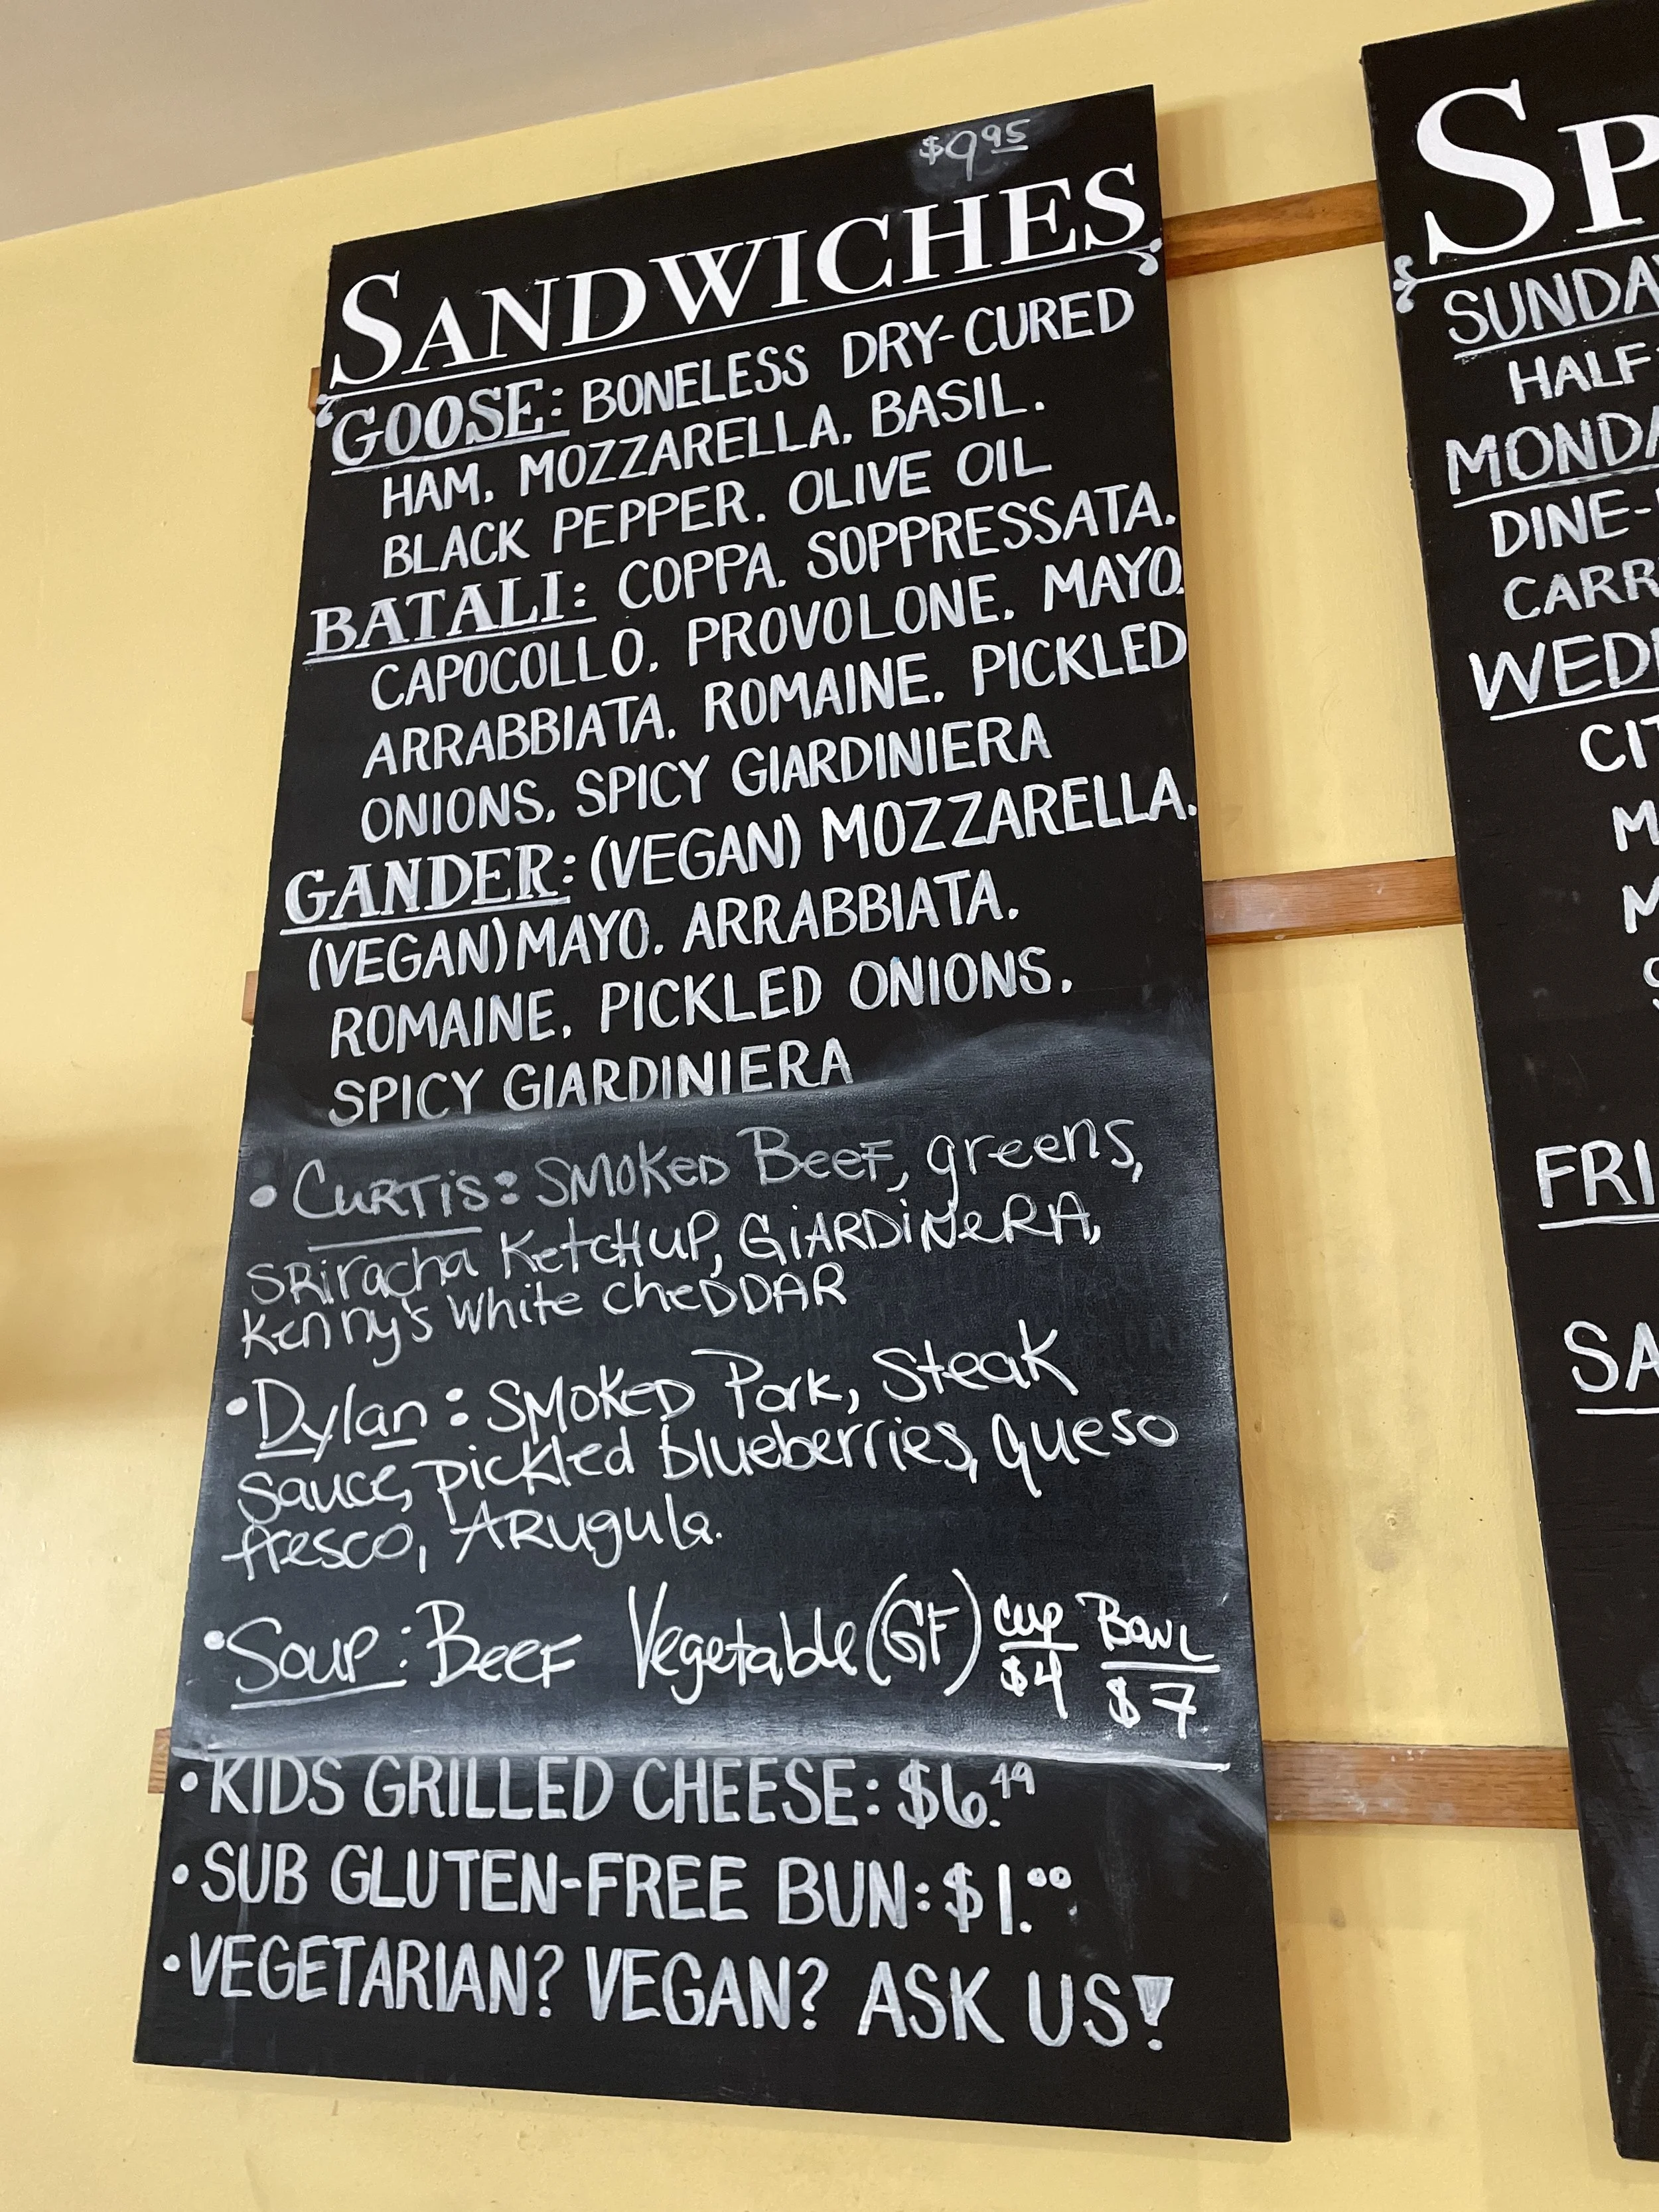 $9.95
SANDWICHES
GOOSE: BONELESS DRY-CURED
HAM. MOZZARELLA. BASIL.
BLACK PEPPER. OLIVE OIL
BATALI: COPPA. SOPPRESSATA.
CAPOCOLLO. PROVOLONE. MAYO.
ARRABBIATA. ROMAINE. PICKLED
ONIONS. SPICY GIARDINIERA
GANDER: (VEGAN) MOZZARELLA.
(VEGAN) MAYO. ARRABBIATA.
ROMAINE. PICKLED ONIONS.
SPICY GIARDINIERA
• CURTiS: SMOKED BeeF, greens,
SRiracha KetcHUP, GiARDiNeRA,
Kenny's White cheDDAR
• Dylan: SMOKED Pork, Steak
sauce, pickled blueberries, queso
fresco, ARugula.
• Soup: BeeF Vegetable (GF) Cup $4 BowL $7
• KIDS GRILLED CHEESE: $6.49
• SUB GLUTEN-FREE BUN: $1.00
• VEGETARIAN? VEGAN? ASK US!
SP
SUNDA
HALF
MONDA
DINE-
CARR
WED
CIT
M
M
S
FRI
SA